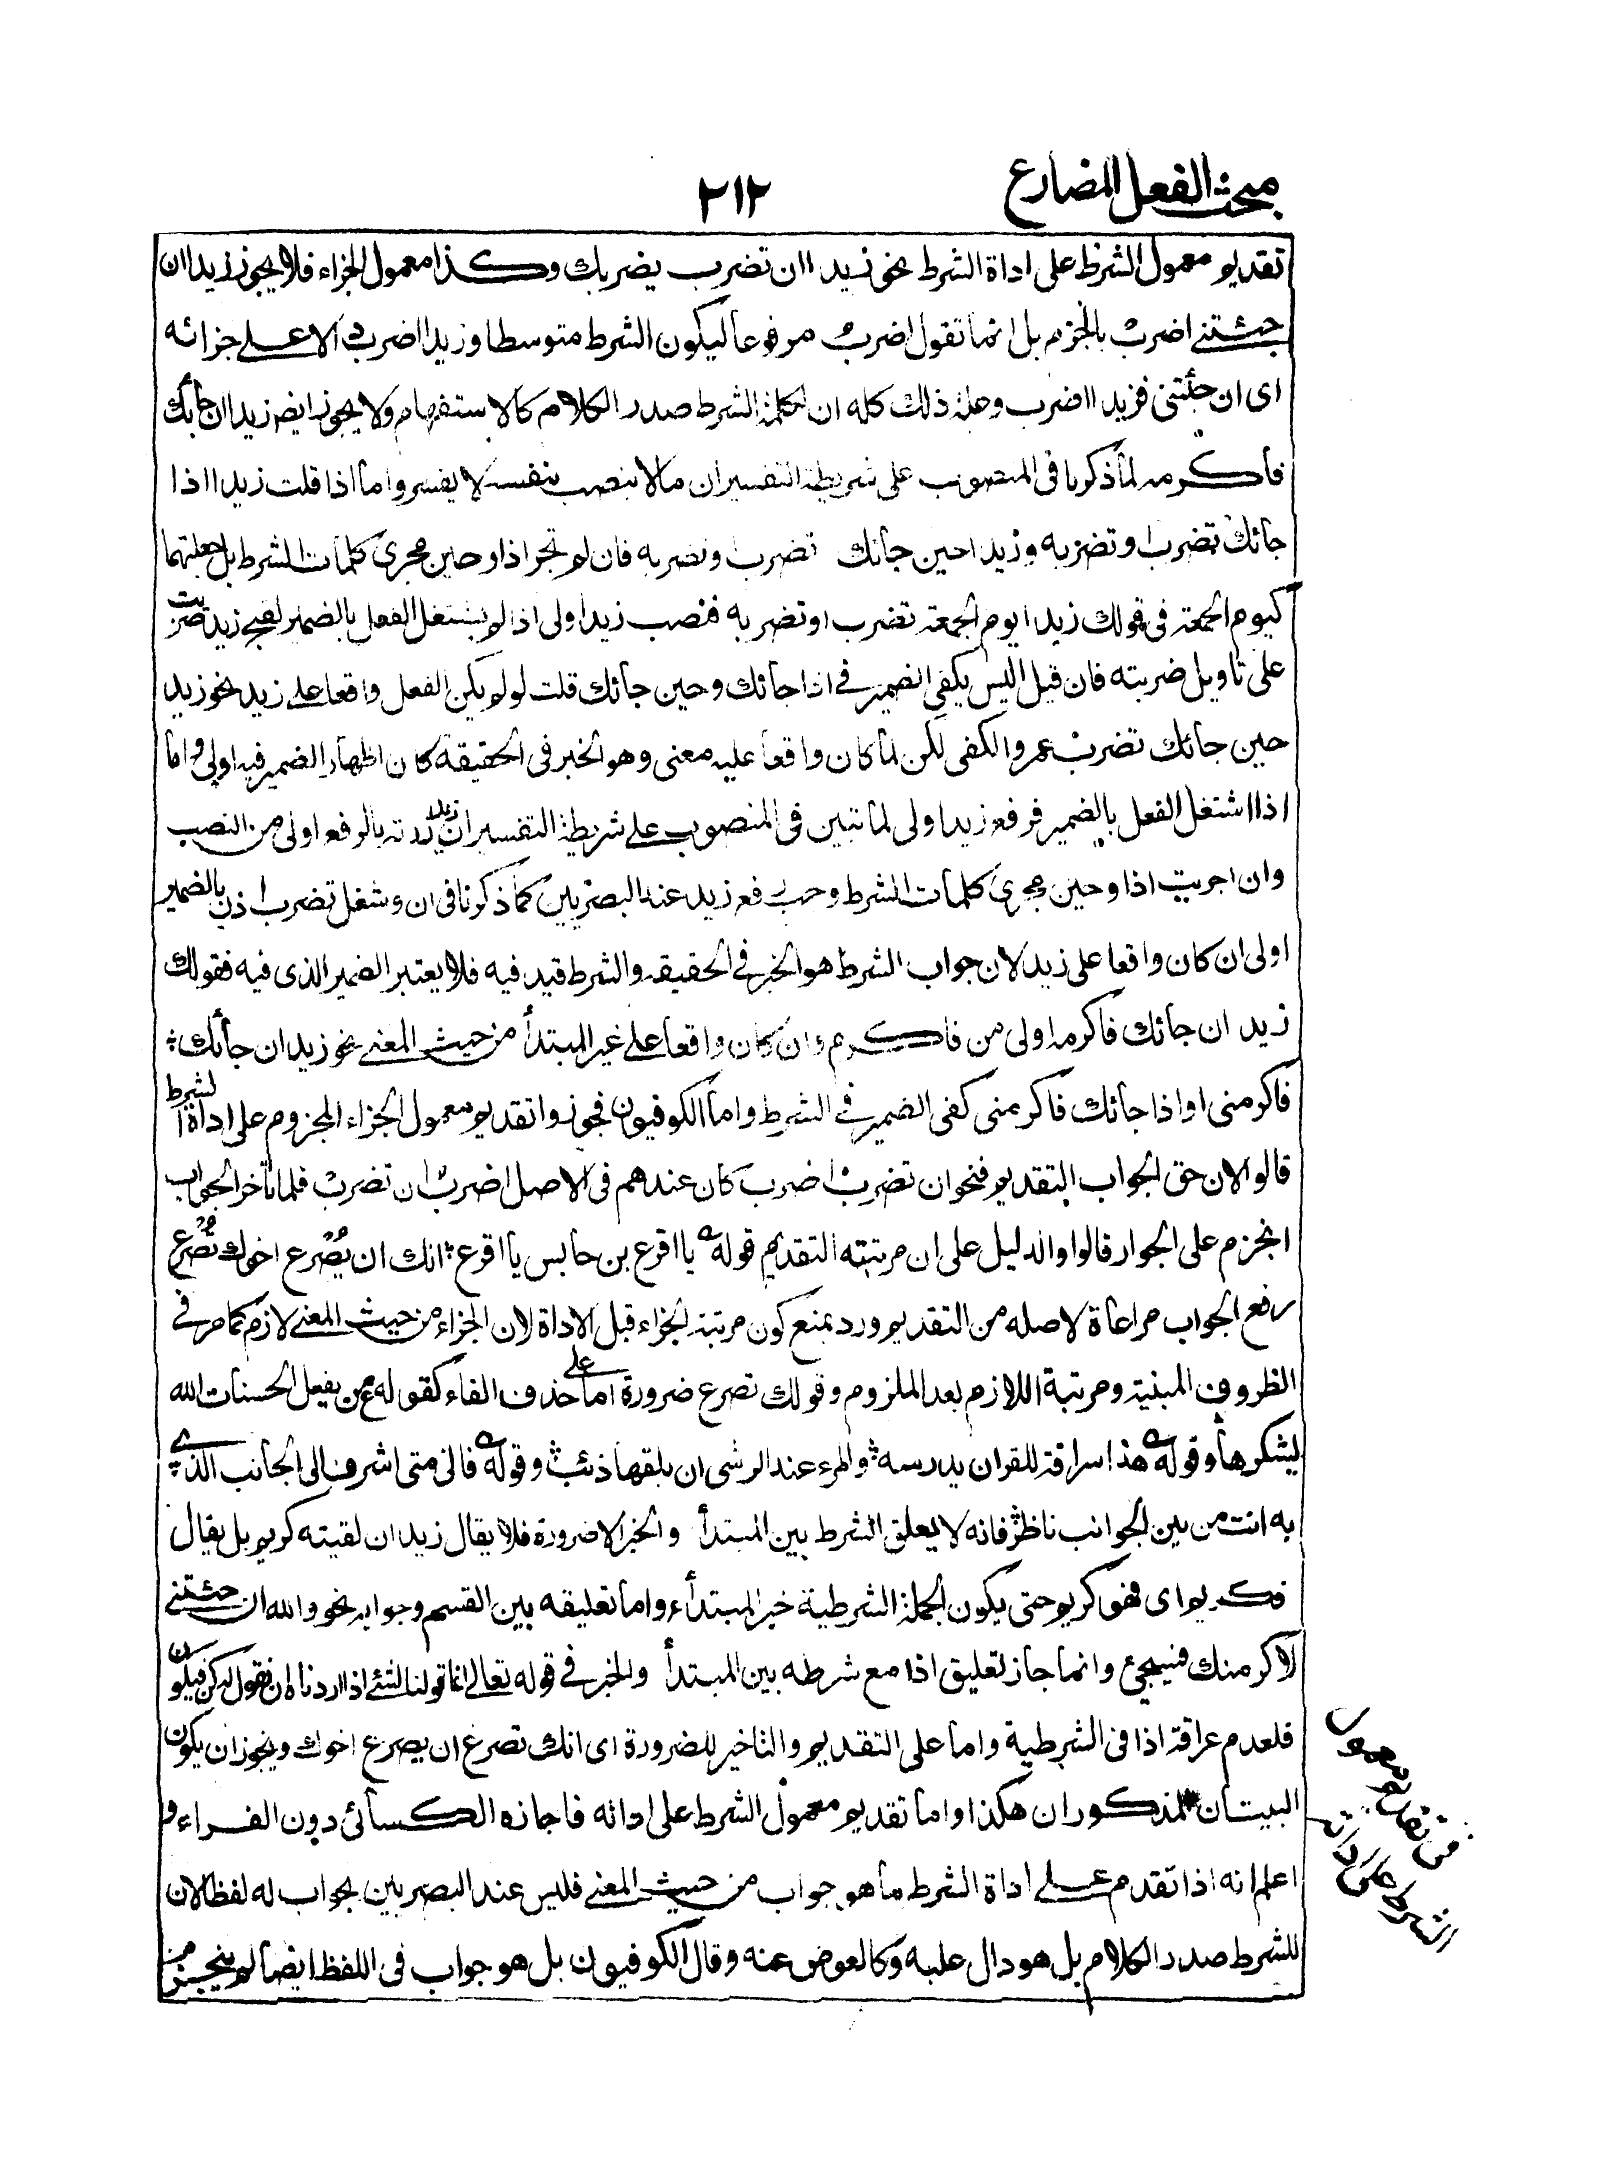 مبحث الفعل المضارع
٢١٢
تقديم معمول الشرط على اداة الشرط نحو زيدا ان تضرب يضربك وكذا معمول الجزاء فلا يجوز زيدا ان
جئتنى اضرب بالجزم بل انما تقول اضرب مرفوعا ليكون الشرط متوسطا وزيدا اضرب دالا على جزائه
اى ان جئتنى فزيدا اضرب وعلة ذلك كله ان لكلمة الشرط صدر الكلام كالاستفهام ولا يجوز ايضا زيدا ان جاءك
فاكرمه لما ذكرنا فى المنصوب على شريطة التفسير ان ما لا ينصب بنفسه لا يفسر واما اذا قلت زيدا اذا
جائك تضرب او تضربه وزيدا حين جائك تضرب وتضربه فان لم تجر اذا وحين مجرى كلمات الشرط بل جعلتهما
كيوم الجمعة فى قولك زيدا يوم الجمعة تضرب او تضربه فنصب زيدا ولى اذا لم يشتغل الفعل بالضمير لقبح زيد ضربت
على تاويل ضربته فان قيل اليس يكفى الضمير فى اذا جائك وحين جائك قلت لو لم يكن الفعل واقعا على زيد نحو زيد
حين جائك تضرب عمروا لكفى لكن لما كان واقعا عليه معنى وهو الخبر فى الحقيقة كان اظهار الضمير فيه اولى واما
اذا اشتغل الفعل بالضمير فرفع زيد اولى لما تبين فى المنصوب على شريطة التفسير ان زيد زرته بالرفع اولى من النصب
وان اجريت اذا وحين مجرى كلمات الشرط وجب رفع زيد عند البصريين كما ذكرنا فى ان وشغل تضرب اذن بالضمير
اولى ان كان واقعا على زيد لان جواب الشرط هو الخبر فى الحقيقة والشرط قيد فيه فلا يعتبر الضمير الذى فيه فقولك
زيد ان جائك فاكرمه اولى من فاكرم وان كان واقعا على غير المبتدأ من حيث المعنى نحو زيد ان جائك
فاكرمنى او اذا جائك فاكرمنى كفى الضمير فى الشرط واما الكوفيون فجوزوا تقديم معمول الجزاء المجزوم على اداة الشرط
قالوا لان حق الجواب التقديم فنحو ان تضرب اضرب كان عندهم فى الاصل اضرب ان تضرب فلما تأخر الجواب
انجزم على الجوار قالوا والدليل على ان مرتبته التقديم قوله يا اقرع بن حابس يا اقرع انك ان يصرع اخوك تصرع
رفع الجواب مراعاة لاصله من التقديم ورد بمنع كون مرتبة الجزاء قبل الاداة لان الجزاء من حيث المعنى لازم كما مر فى
الظروف المبنية ومرتبة اللازم بعد الملزوم وقولك تصرع ضرورة اما على حذف الفاء كقوله ع من يفعل الحسنات الله
يشكرها وقوله هذا سراقة للقران يدرسه والمرء عند الرشى ان يلقها ذئب وقوله فانى متى اشرف الى الجانب الذى
به انت من بين الجوانب ناظر فانه لا يعلق الشرط بين المبتدأ والخبر الا ضرورة فلا يقال زيد ان لقيته كريم بل يقال
فكريم اى فهو كريم حتى يكون الجملة الشرطية خبر المبتدأ واما تعليقه بين القسم وجوابه نحو والله ان جئتنى
لاكرمنك فسيجئ وانما جاز تعليق اذا مع شرطه بين المبتدأ والخبر فى قوله تعالى انما قولنا لشئ اذا اردناه ان نقول له كن فيكون
فلعدم عراقة اذا فى الشرطية واما على التقديم والتاخير للضرورة اى انك تصرع ان يصرع اخوك ويجوز ان يكون
البيتان المذكوران هكذا واما تقديم معمول الشرط على اداته فاجازه الكسائى دون الفراء و
اعلم انه اذا تقدم على اداة الشرط ما هو جواب من حيث المعنى فليس عند البصريين بجواب له لفظا لان
للشرط صدر الكلام بل هو دال عليه وكالعوض عنه وقال الكوفيون بل هو جواب فى اللفظ ايضا لم ينجزم
فى تقديم معمول
الشرط على اداته